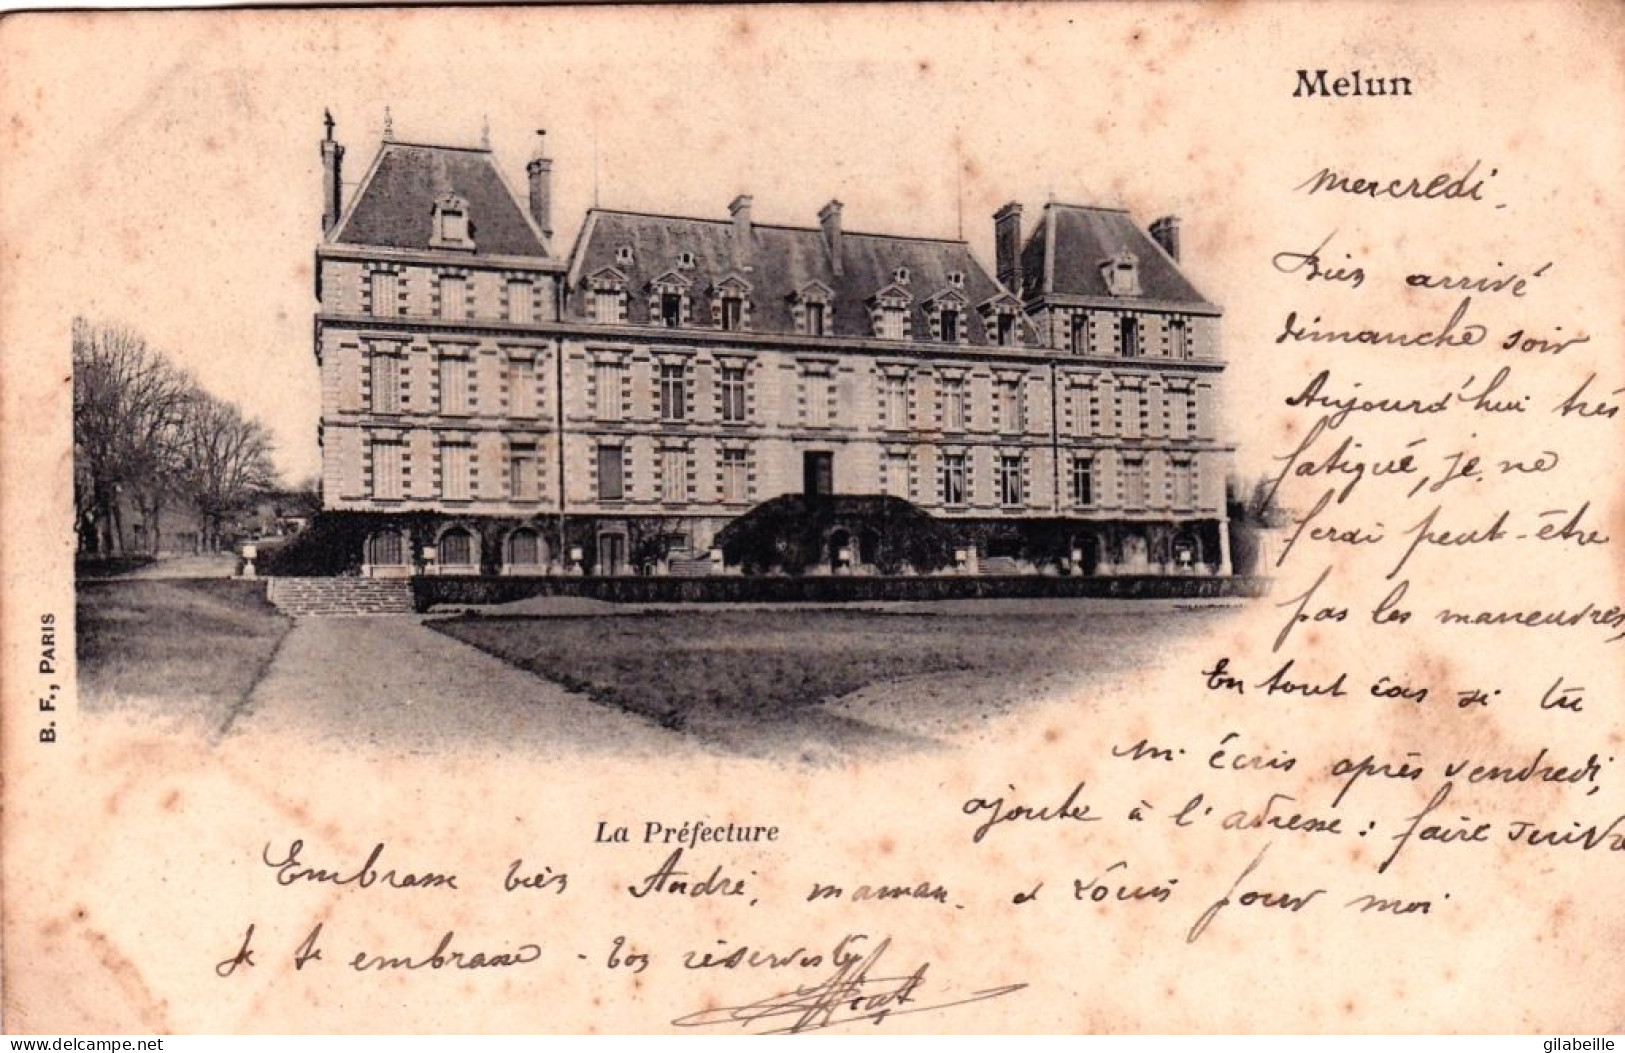 Melun
mercredi.
Bien arrivé
dimanche soir
Aujourd'hui très
fatigué, je ne
ferai peut-être
pas les manœuvres,
En tout cas si tu
m'écris après vendredi,
ajoute à l'adresse : faire suivre
La Préfecture
Embrasse bien André, maman et Louis pour moi
Je te embrasse - ton réserviste
B. F., PARIS
www.delcampe.net
gilabeille